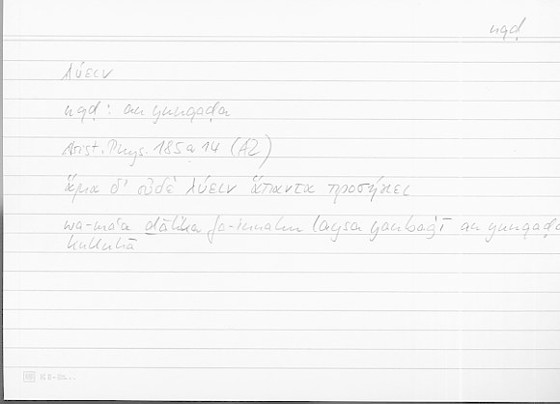 nqḍ
λύειν
nqḍ : an yunqaḍa
Arist. Phys. 185a14 (AZ)
ἅμα δ' οὐδὲ λύειν ἅπαντα προσήκει
wa-maʿa ḏālika fa-innahu laysa yanbaġī an yunqaḍa
kulluhā